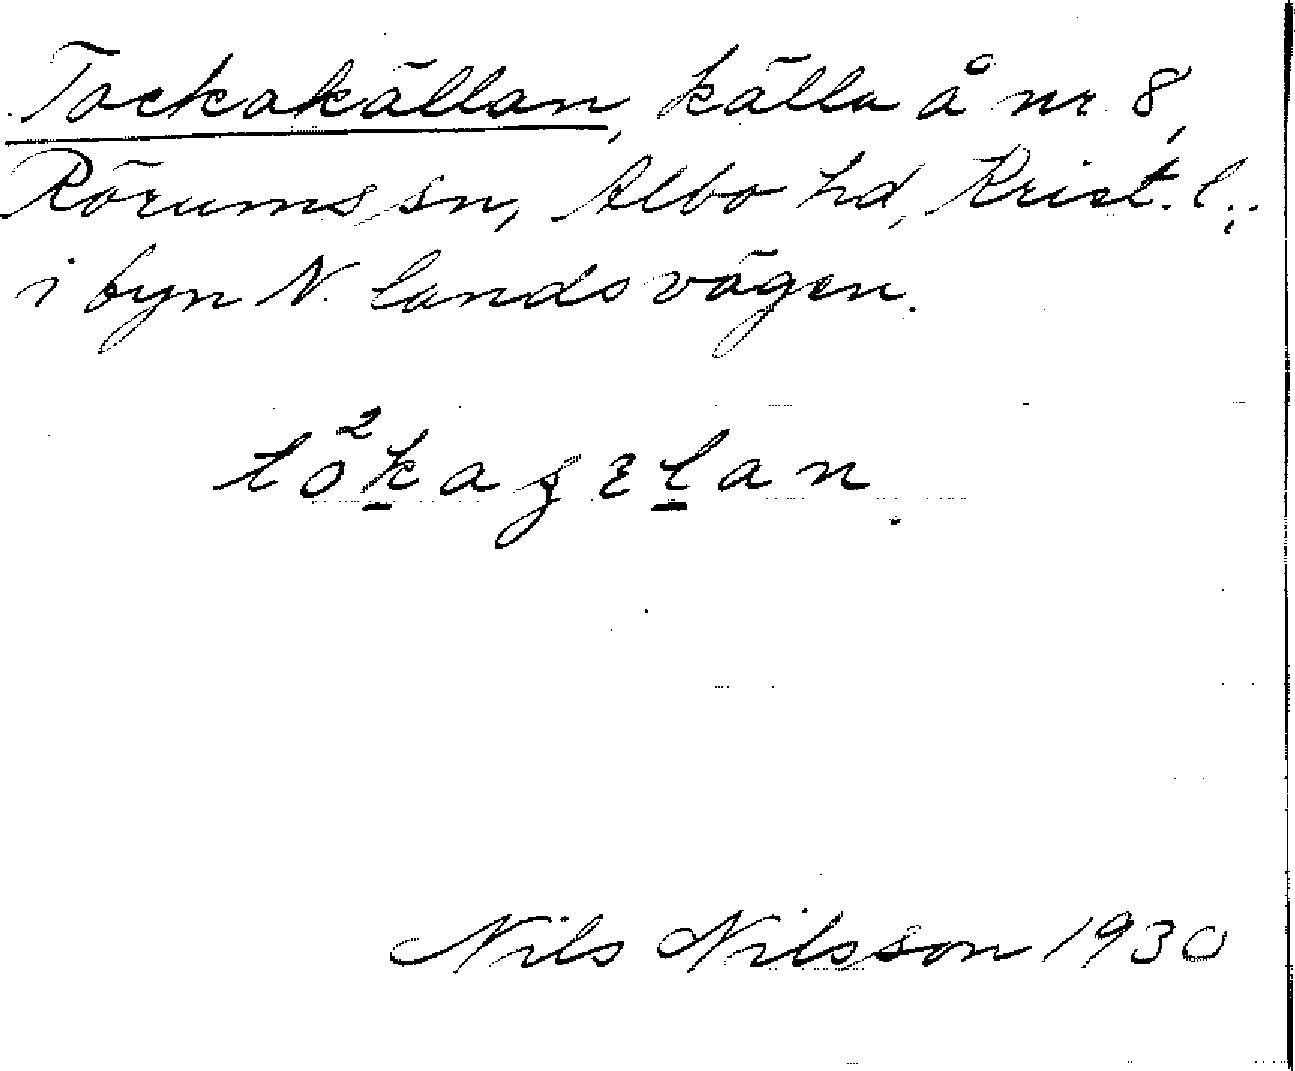 Tockakällan, källa å nr 8,
Rörums sn, Albo hd, Krist. l.;
i byn N. landsvägen.
Nils Nilsson 1930